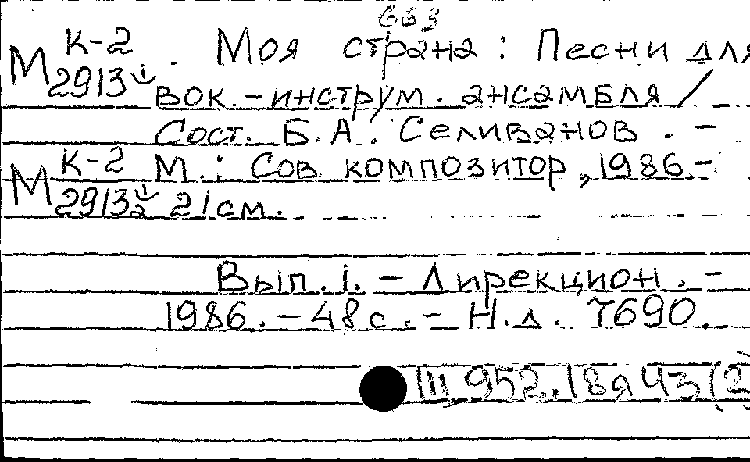 663
К-2
М 2913 1
Моя страна: Песни для
вок.-инструм. ансамбля /
Сост. Б.А. Селиванов. -
К-2
М 2913 1/2
М.: Сов композитор, 1986.-
21см.
Вып. 1. - Дирекцион. -
1986. - 48с. - Н.д. 7690.
952.18я43(2